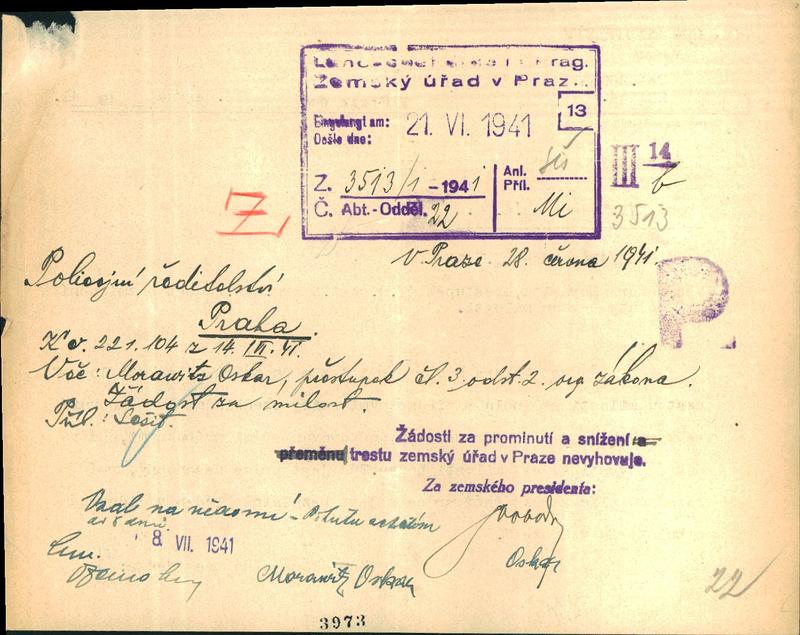 Zemský úřad v Praz
13
Došlo dne:
21. VI. 1941
Z. 3513/1 - 1941
Anl.
Příl.
Č. Abt.-Odděl. 22
Mi
III 14
b
3513
Z,
V Praze 28. června 1941.
Policejní ředitelství
Praha
K č. 221.104 z 14. III. 41.
Věc: Morawitz Oskar, přestupek čl. 3. odst. 2. org. zákona.
Žádost za milost.
Příl.: Sešit.
P
Žádosti za prominutí a snížení a
přeměnu trestu zemský úřad v Praze nevyhovuje.
Za zemského presidenta:
Vzal na vědomí
8. VII. 1941
Morawitz Oskar
Oskar
22
3973